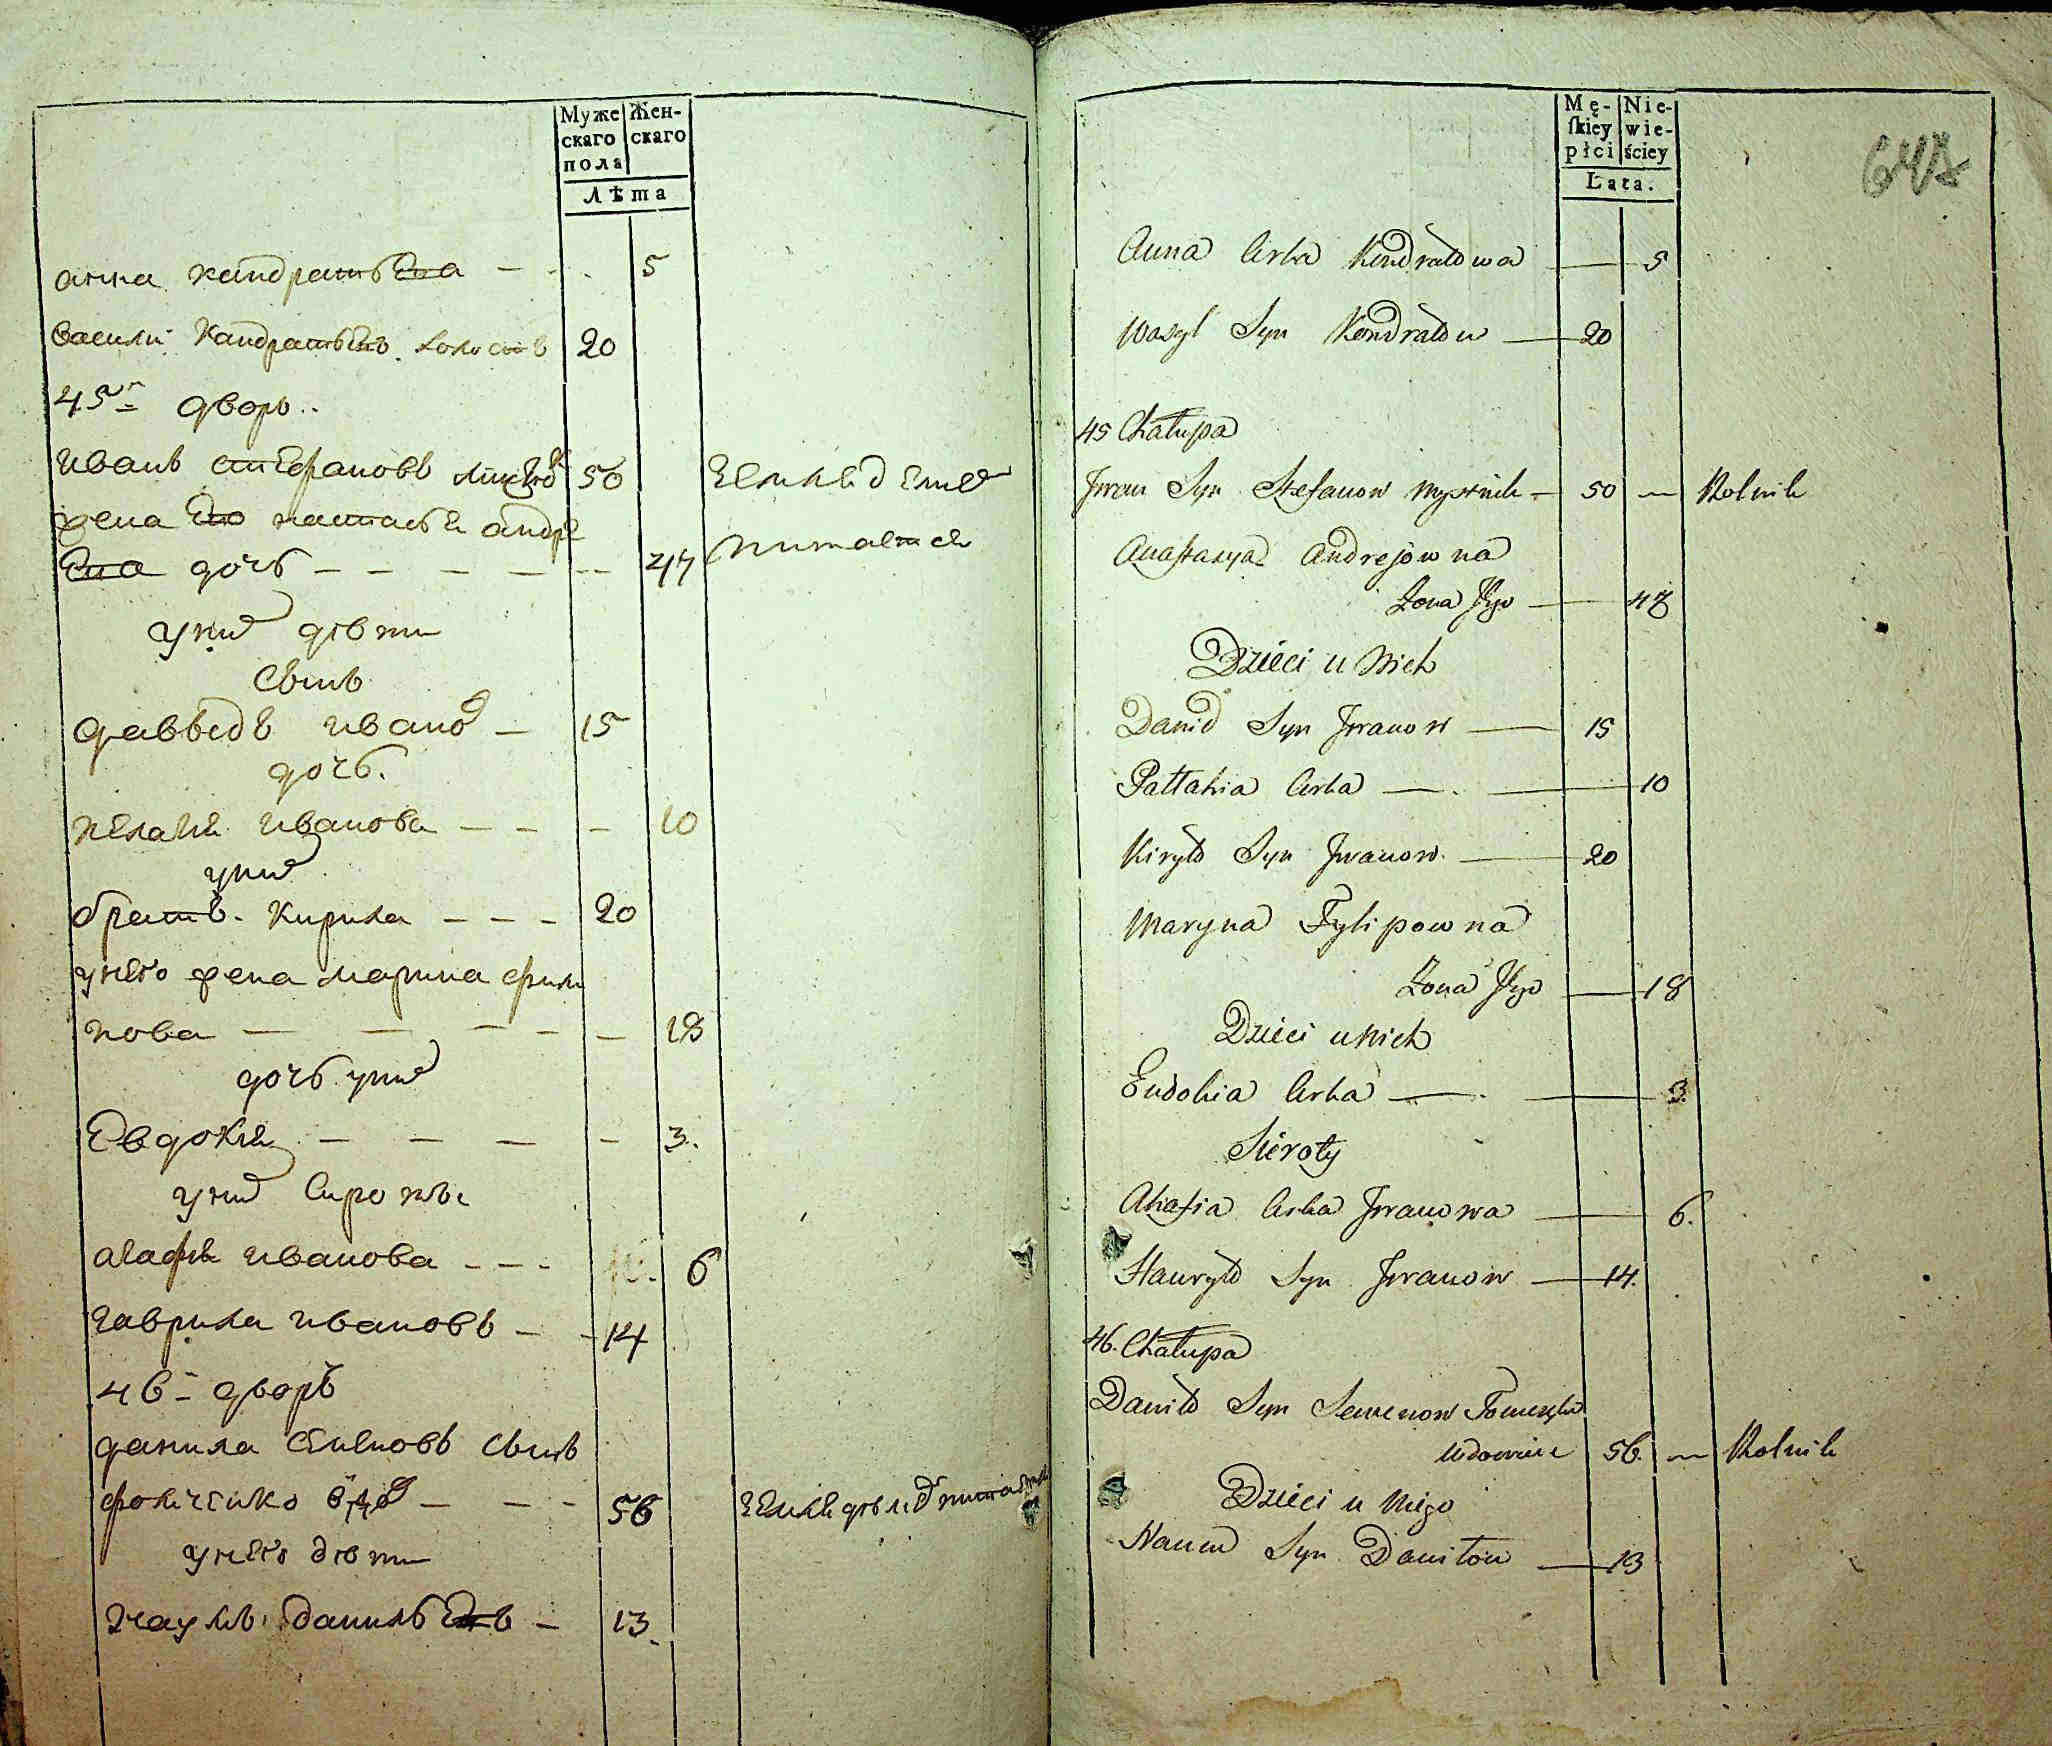 Муже
скаго
пола
Жен-
скаго
Лѣта
анна кандратьева — 5
Василий Кандратьевъ холостъ 20
45й дворъ
Иванъ стефановъ 50
жена его настасья андре
ева дочь — 47
у них дѣти
Сынъ
давыдъ иванов — 15
дочь
пелагея иванова — 10
у них
братъ кирила — 20
у него жена марина фили
пова — 18
дочь у них
Евдокия — 3.
у них Сироты
агафья иванова — 6
гаврила ивановъ — 14
46 дворъ
данила семеновъ сынъ
вдов — 56
у него дѣти
наумъ данильевъ — 13.
Mę-
skiey
płci
Nie-
wie-
ściey
Lata.
647
Anna Crka Kondratowa — 5
Wasyl Syn Kondratow — 20
45 Chałupa
Jwan Syn Stefanow Myśnik — 50 — Rolnik
Anastasya Andrejowna
Żona Jego — 47
Dzieci u Nich
Dawid Syn Jwanow — 15
Pałłahia Crka — 10
Kiryło Syn Jwanow — 20
Maryna Fylipowna
Żona Jego — 18
Dzieci u Nich
Eudokia Crka — 3.
Sieroty
Ahafia Crka Jwanowa — 6.
Hauryło Syn Jwanow — 14.
46. Chałupa
Daniło Syn Semenow
Wdowiec 56. — Rolnik
Dzieci u Niego
Naum Syn Daniłow — 13